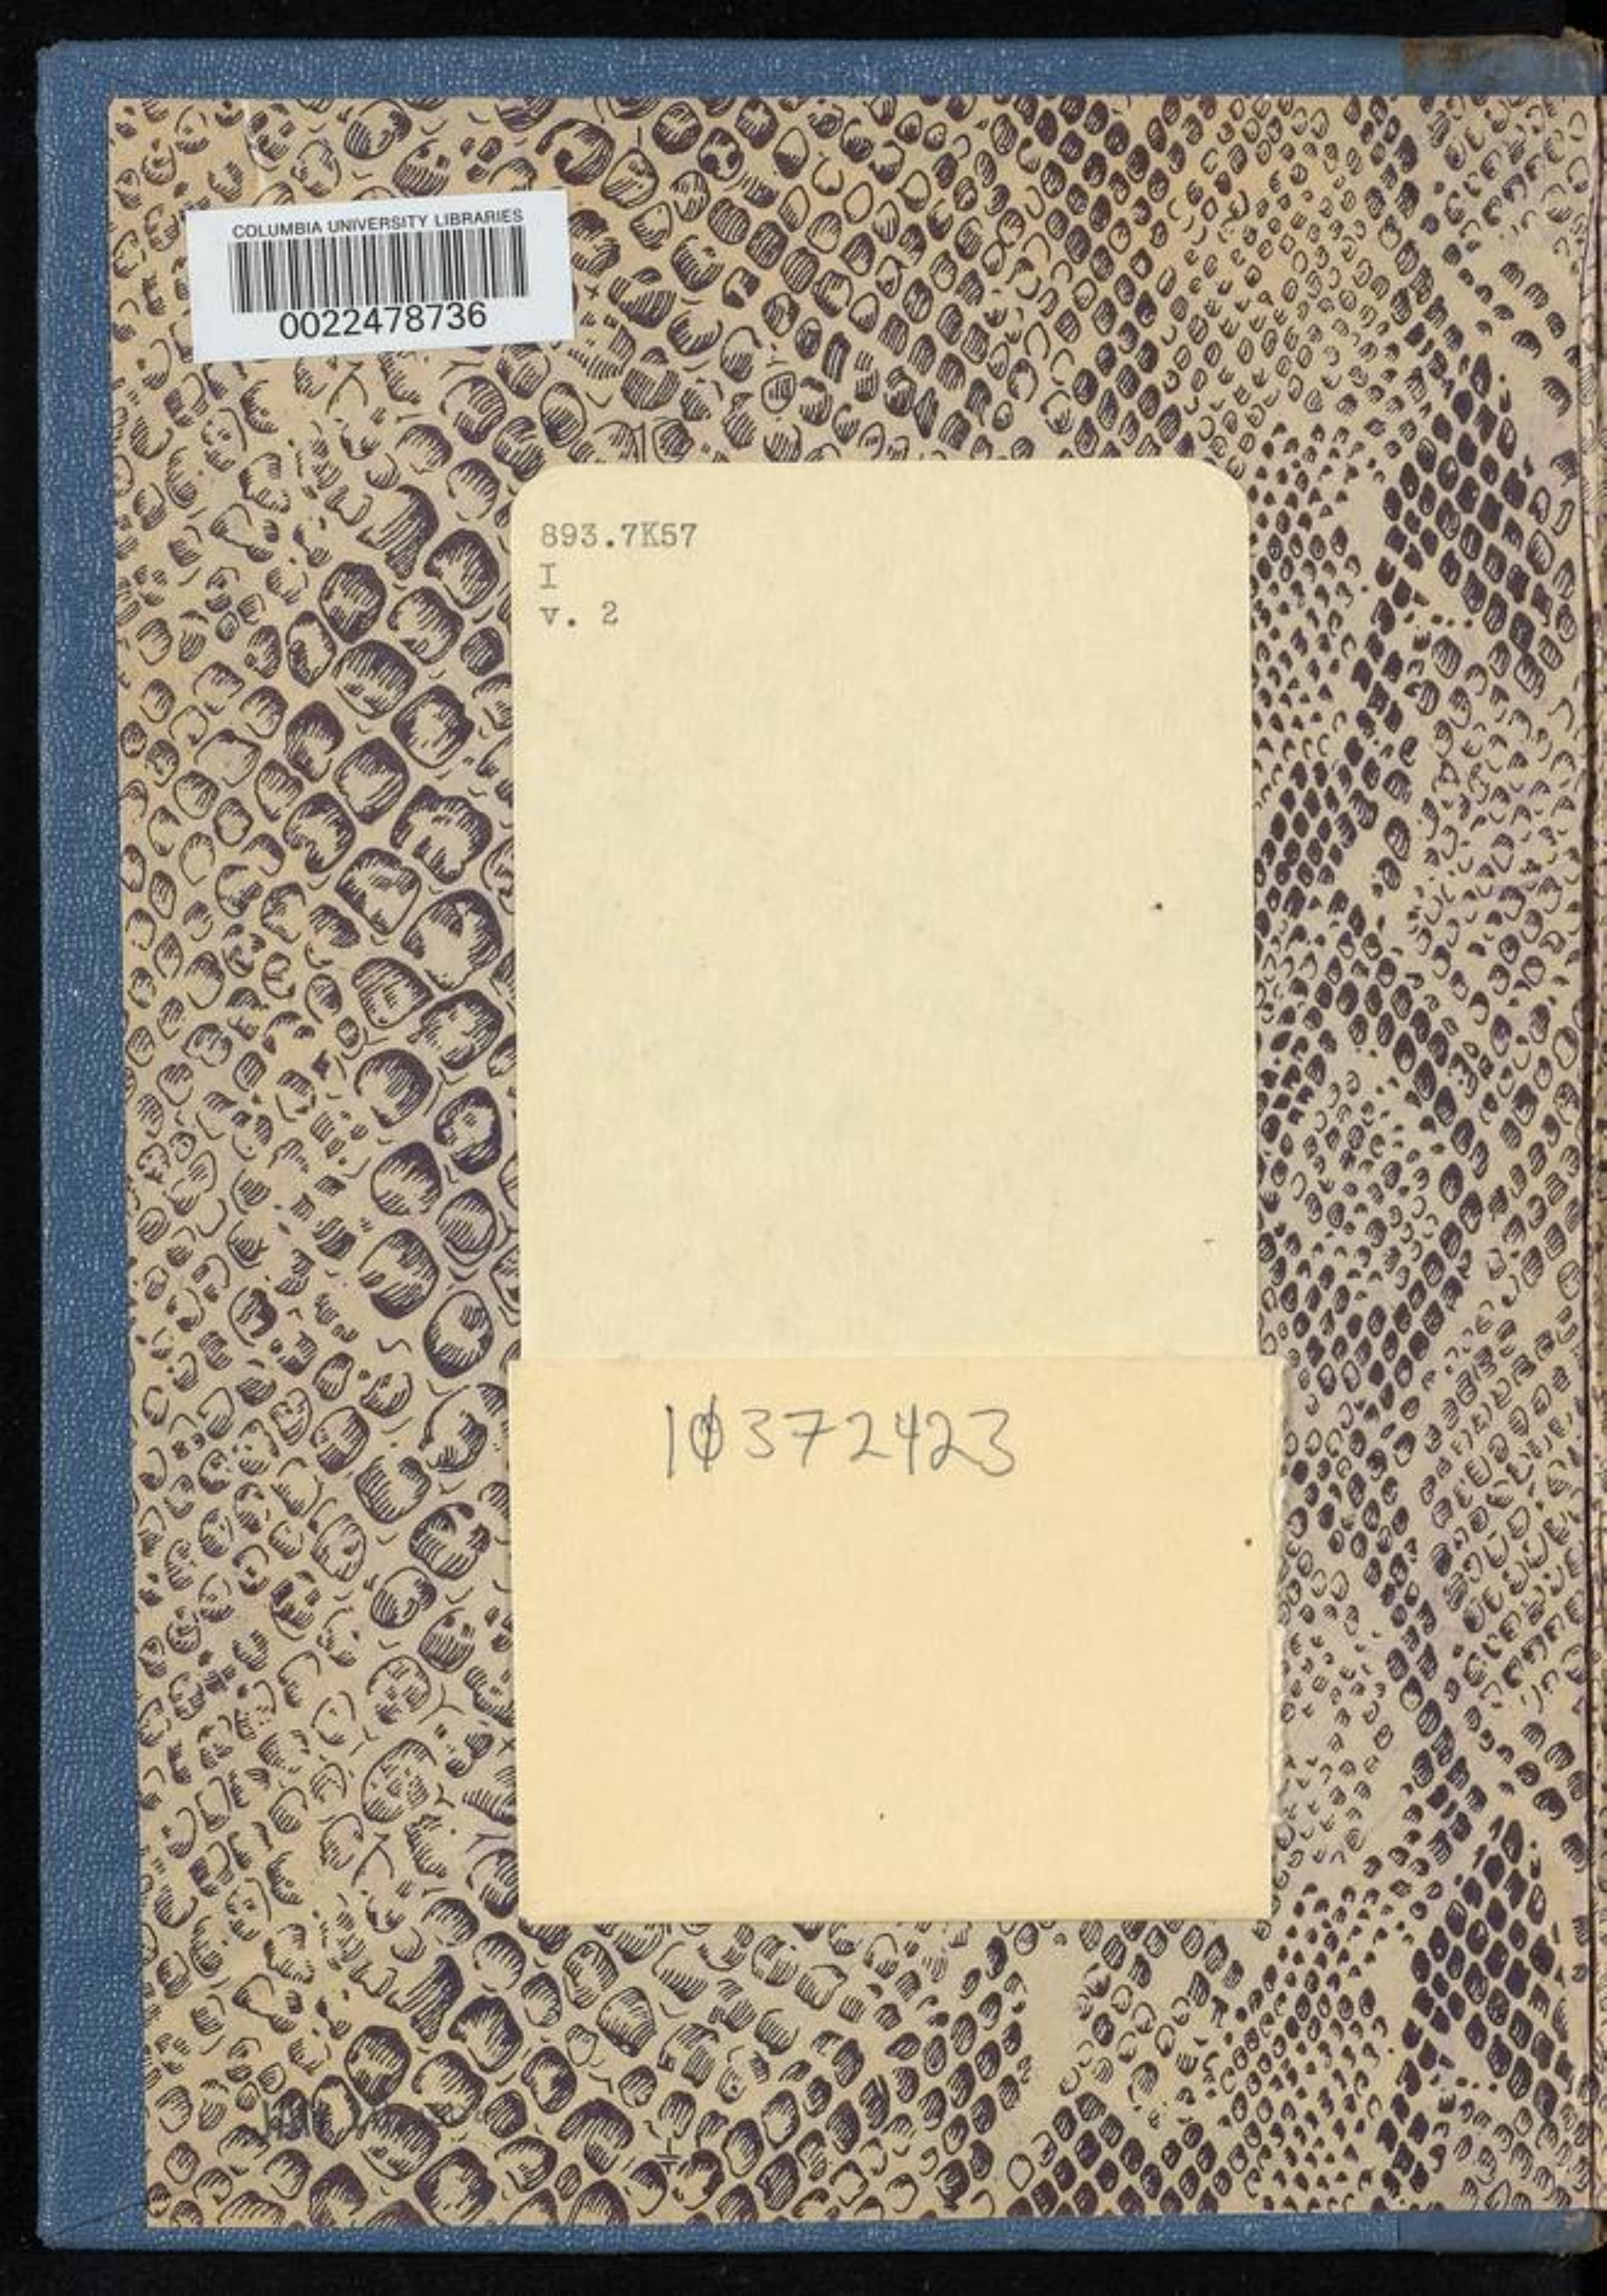 COLUMBIA UNIVERSITY LIBRARIES
0022478736
893.7K57
I
v. 2
10372423